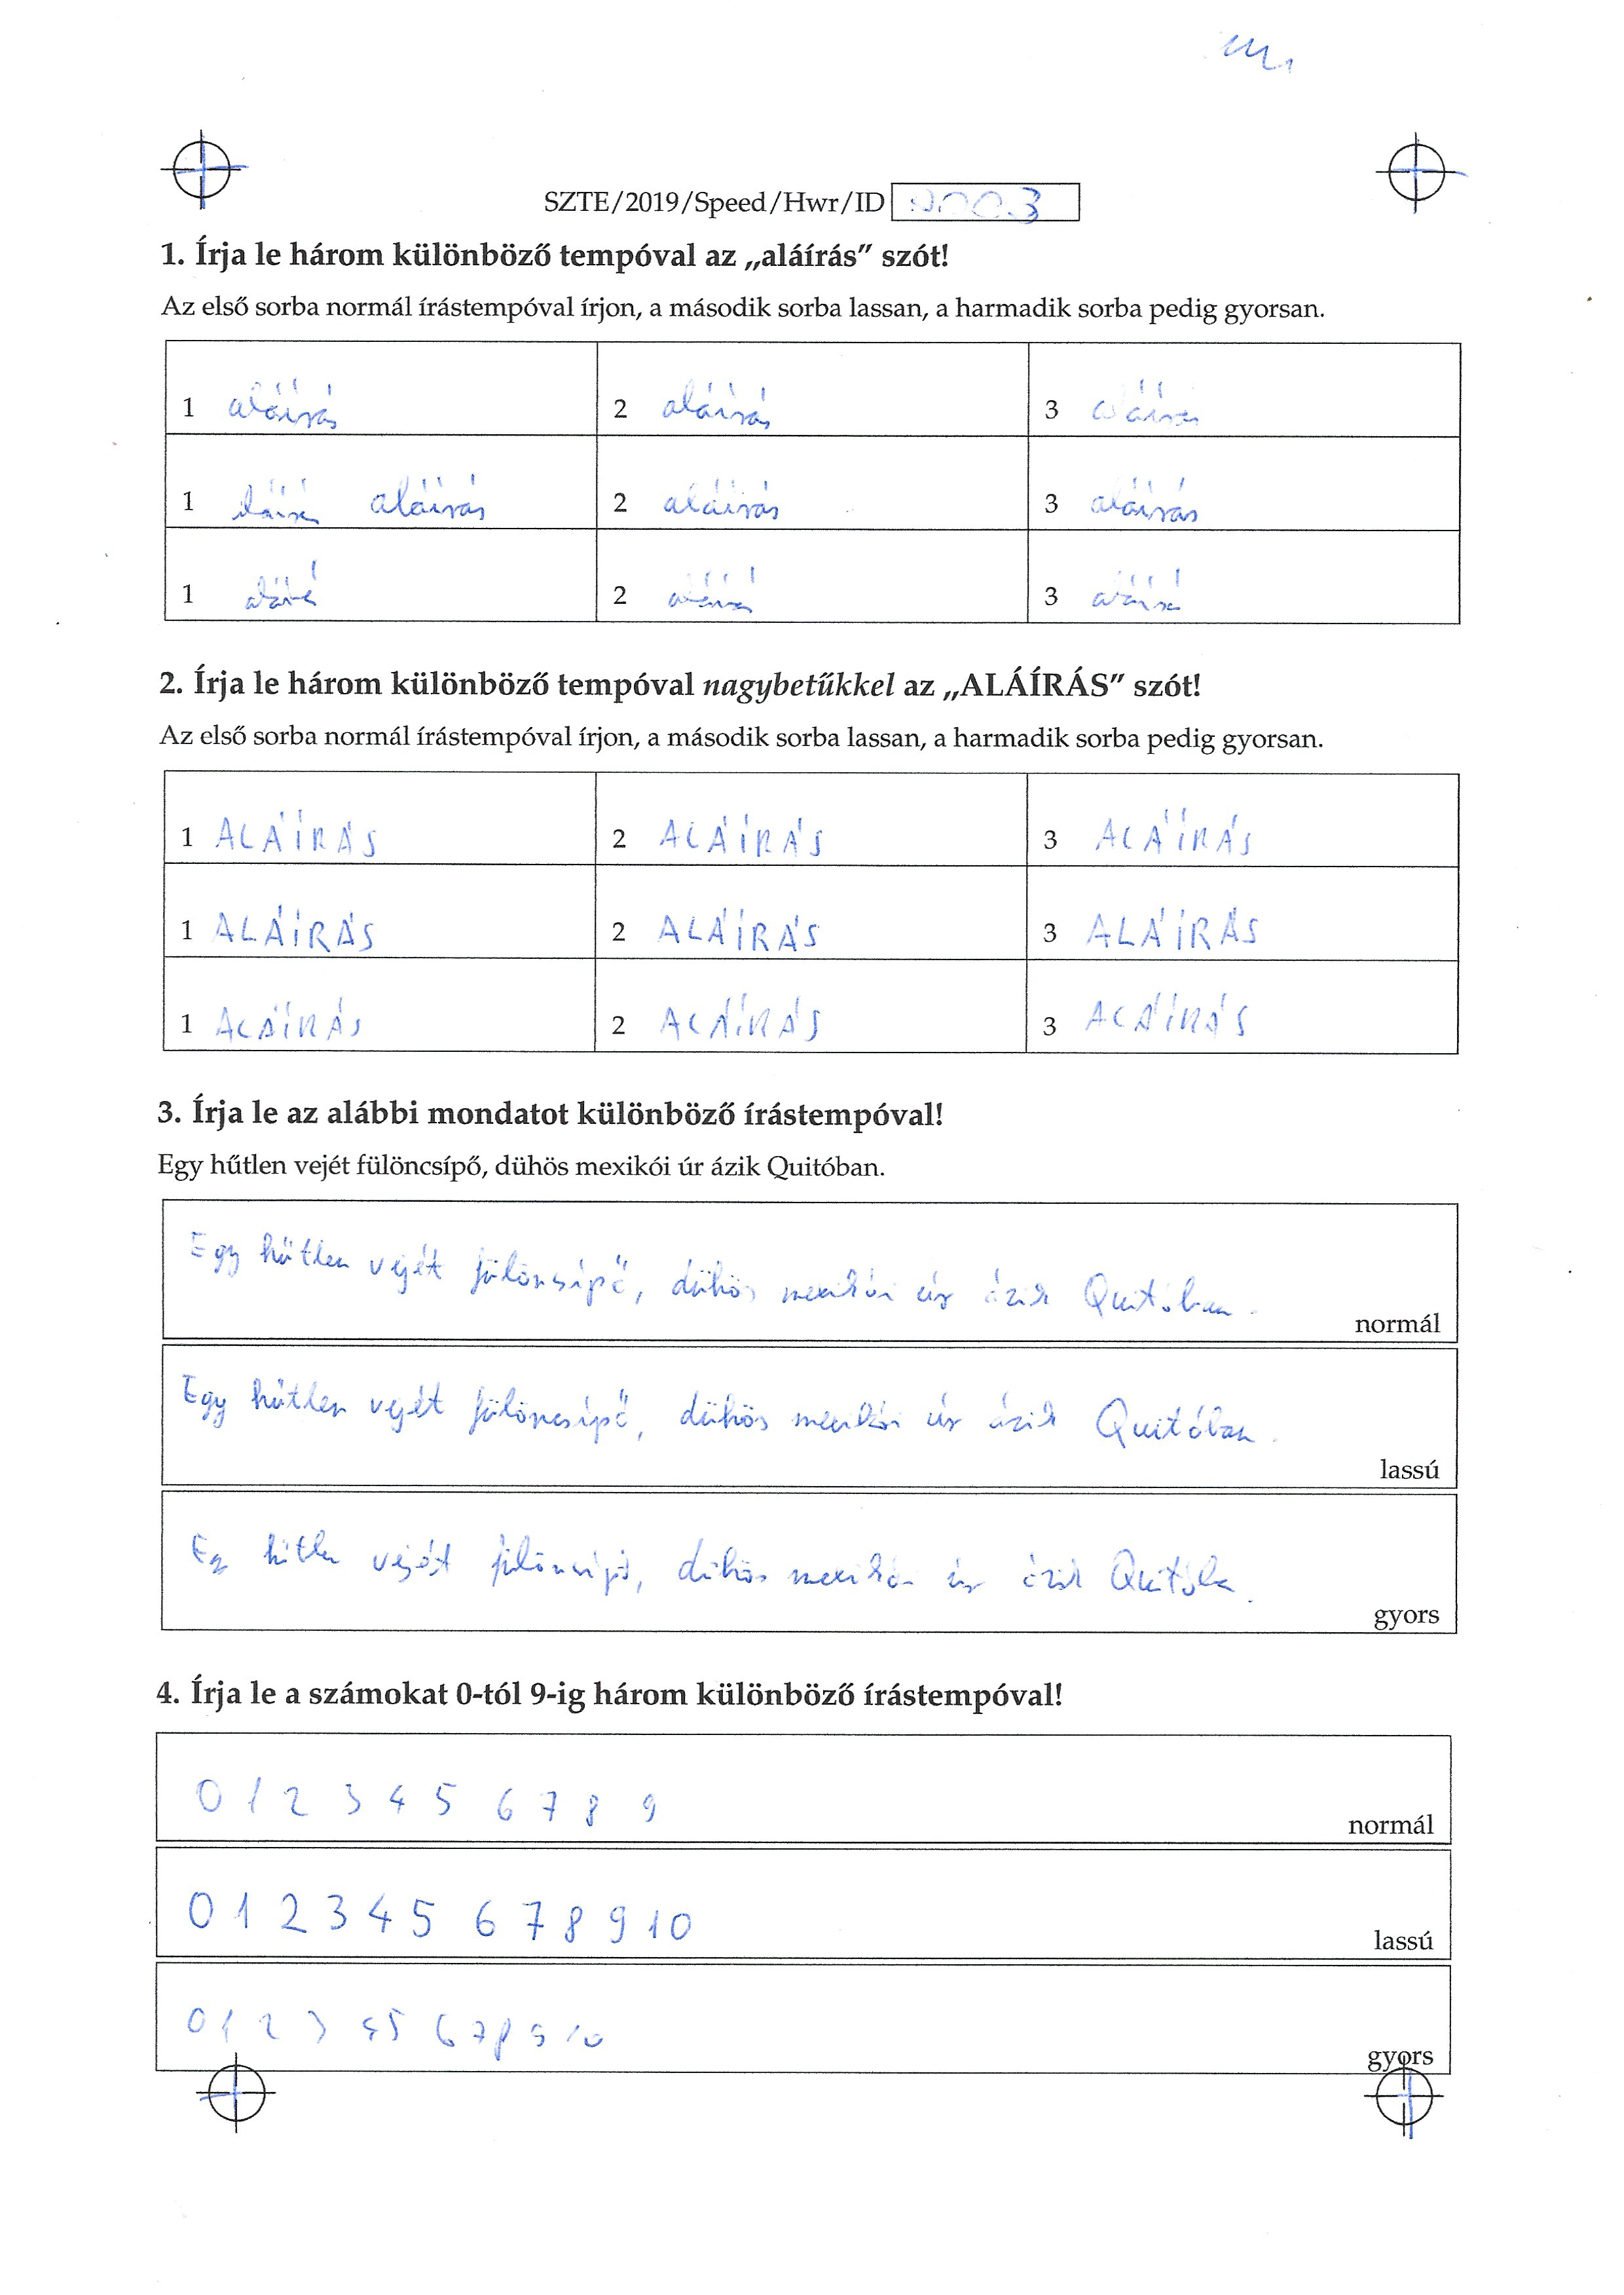 SZTE/2019/Speed/Hwr/ID 0003
1. Írja le három különböző tempóval az „aláírás” szót!
Az első sorba normál írástempóval írjon, a második sorba lassan, a harmadik sorba pedig gyorsan.
1 aláírás 2 aláírás 3 aláírás
1 aláírás 2 aláírás 3 aláírás
1 2 3
2. Írja le három különböző tempóval nagybetűkkel az „ALÁÍRÁS” szót!
Az első sorba normál írástempóval írjon, a második sorba lassan, a harmadik sorba pedig gyorsan.
1 ALÁÍRÁS 2 ALÁÍRÁS 3 ALÁÍRÁS
1 ALÁÍRÁS 2 ALÁÍRÁS 3 ALÁÍRÁS
1 ALÁÍRÁS 2 ALÁÍRÁS 3 ALÁÍRÁS
3. Írja le az alábbi mondatot különböző írástempóval!
Egy hűtlen vejét fülöncsípő, dühös mexikói úr ázik Quitóban.
Egy hűtlen vejét fülöncsípő, dühös mexikói úr ázik Quitóban.
normál
Egy hűtlen vejét fülöncsípő, dühös mexikói úr ázik Quitóban.
lassú
Egy hűtlen vejét fülöncsípő, dühös mexikói úr ázik Quitóban.
gyors
4. Írja le a számokat 0-tól 9-ig három különböző írástempóval!
0 1 2 3 4 5 6 7 8 9
normál
0 1 2 3 4 5 6 7 8 9 10
lassú
0 1 2 3 4 5 6 7 8 9 10
gyors